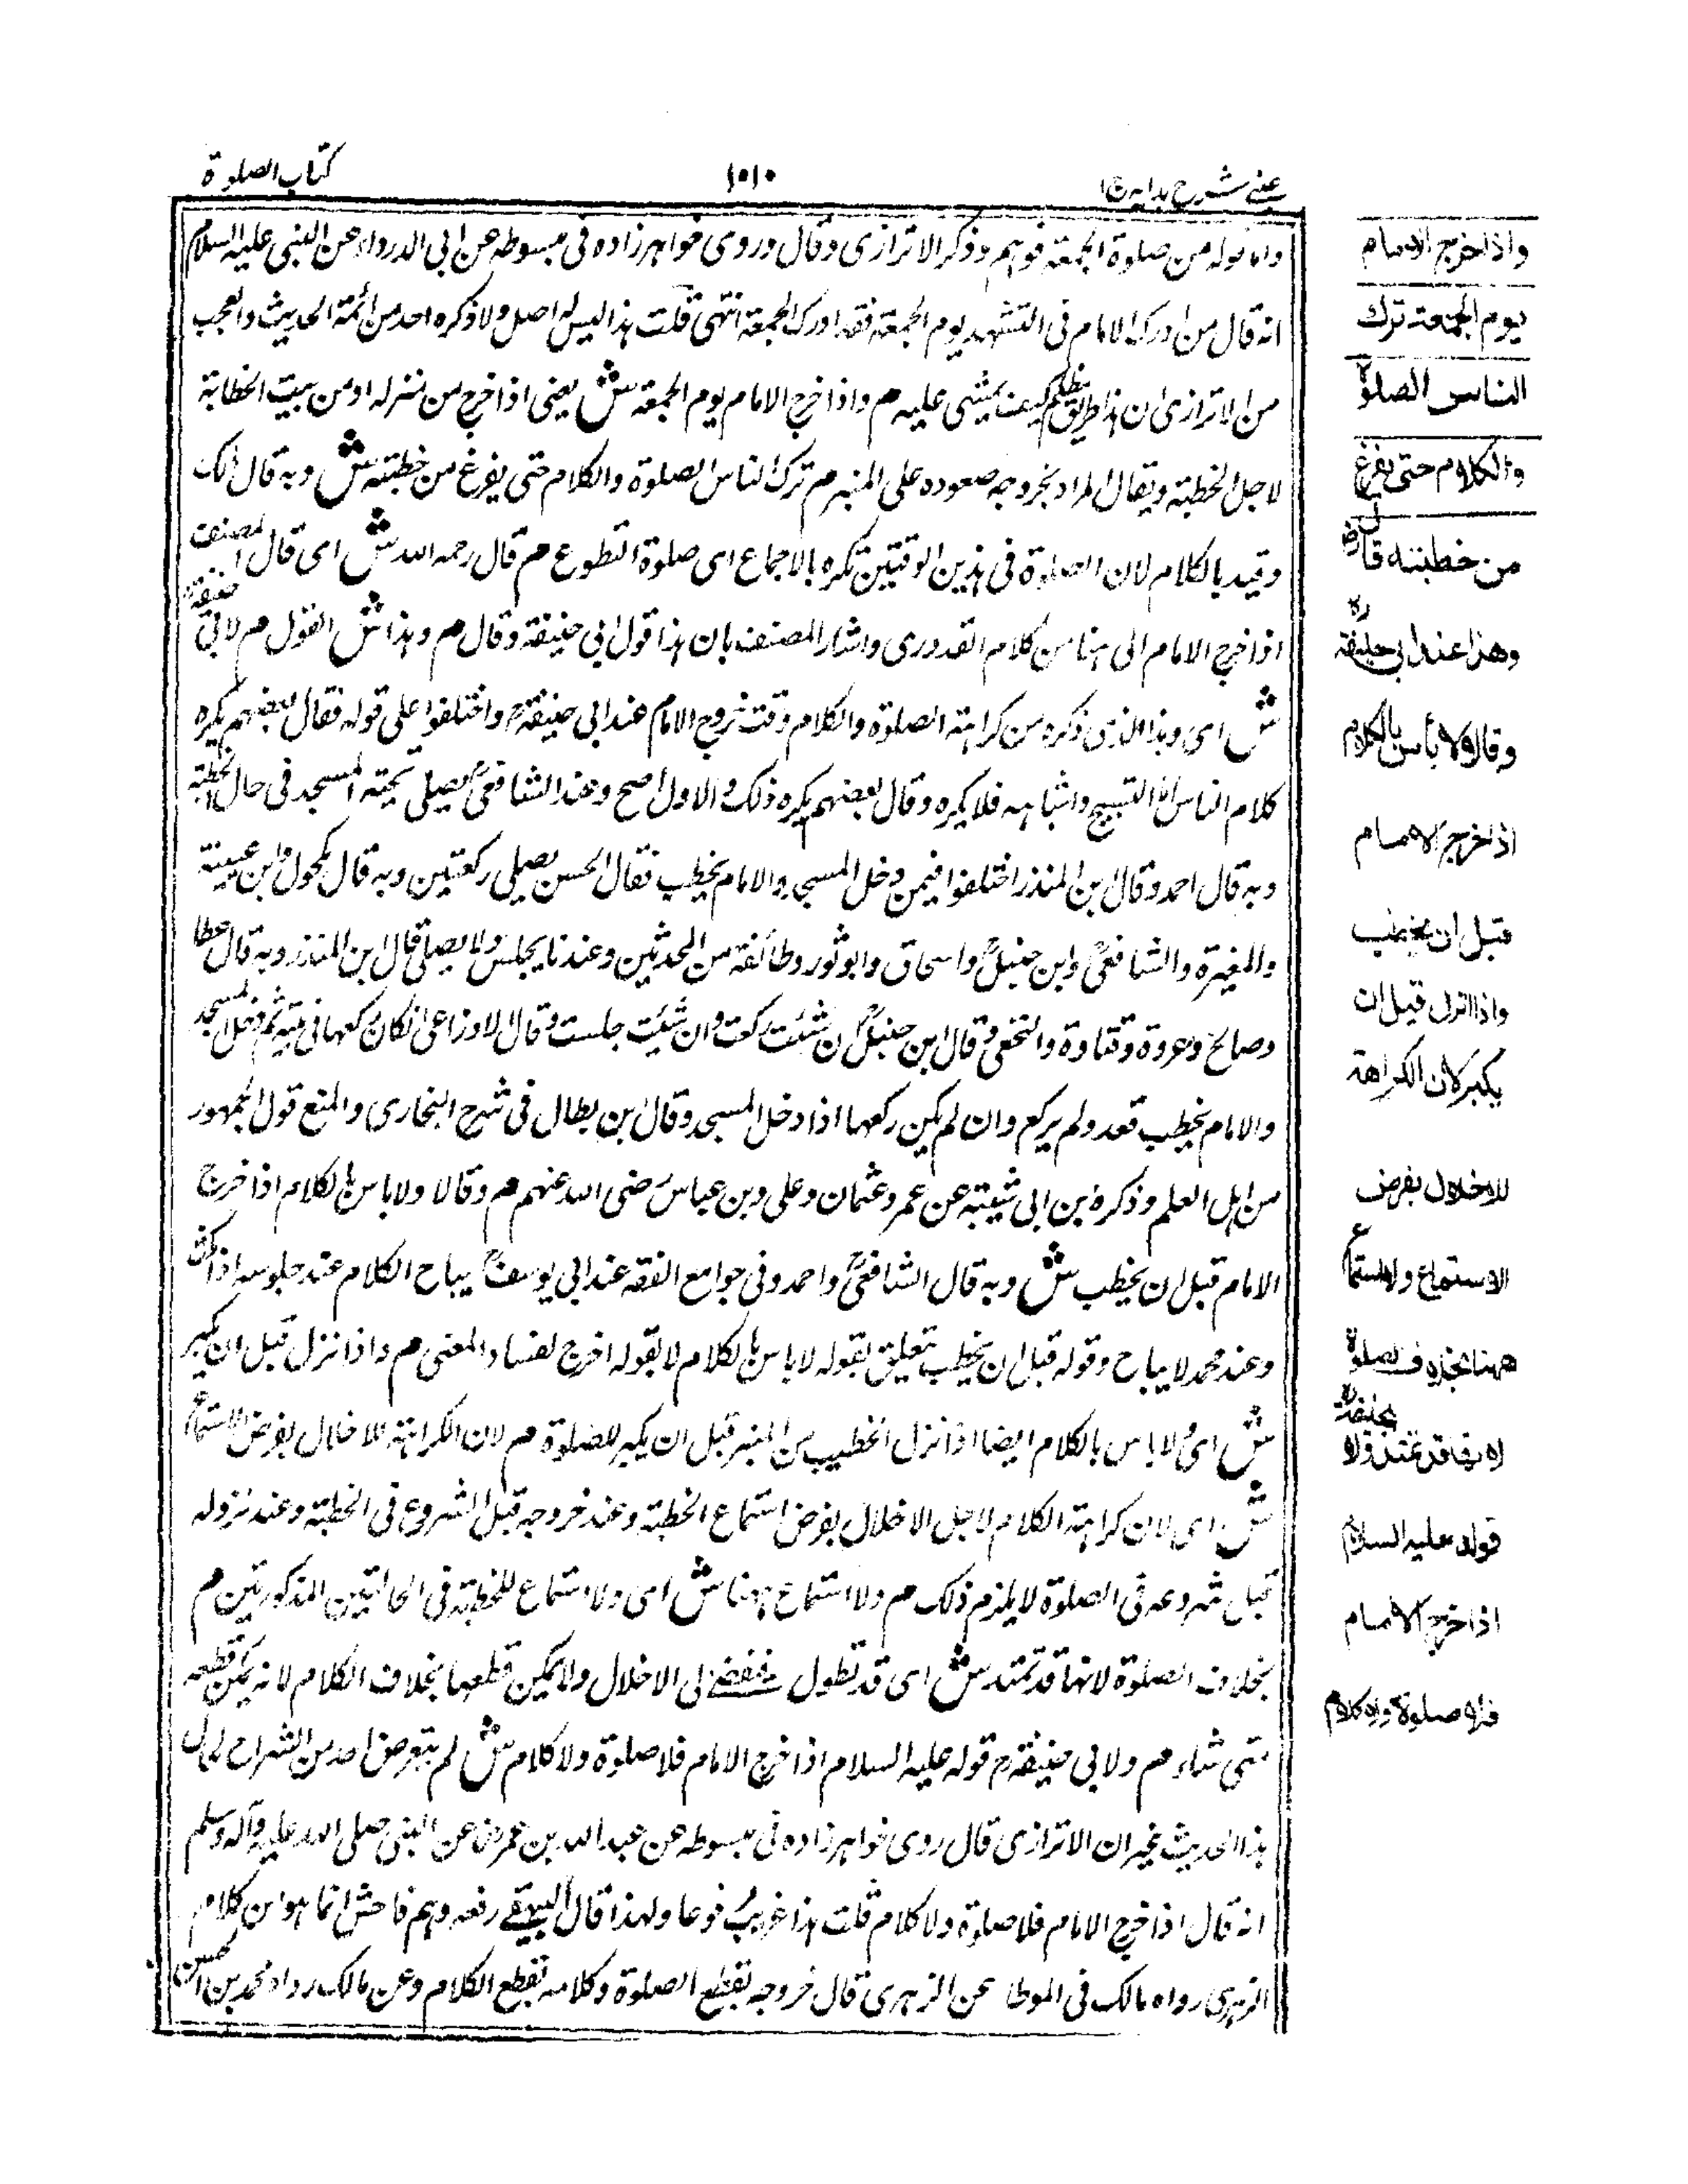 عینی شرح ہدایہ ج۱
۱۰۱۰
کتاب الصلوة
واما قوله من صلوة الجمعة فوہم وذکر الاترازی وقال وروی خواہرزادہ فی مبسوطہ عن ابی الدرداء عن النبی علیہ السلام
انہ قال من ادرک الامام فی التشہد یوم الجمعة فقد ادرک الجمعة انتہی قلت ہذا لیس لہ اصل ولا ذکرہ احد من ائمة الحدیث والعجب
من الاترازی ان ہذا طریق مظلم کیف یمشی علیہ م واذا خرج الامام یوم الجمعة ش یعنی اذا خرج من منزلہ او من بیت الخطابة
لاجل الخطبة ویقال المراد بخروجہ صعودہ علی المنبر م ترک الناس الصلوة والکلام حتی یفرغ من خطبتہ ش وبہ قال مالک
وقید بالکلام لان الصلوة فی ہذین الوقتین تکرہ بالاجماع ای صلوة التطوع م قال رحمہ اللہ ش ای قال المصنف
اذا خرج الامام الی ہنا من کلام القدوری واشار المصنف بان ہذا قول ابی حنیفة وقال م وہذا ش القول م لابی حنیفة
ش ای وہذا الذی ذکرہ من کراہة الصلوة والکلام وقت خروج الامام عند ابی حنیفة رح واختلفوا علی قولہ فقال بعضہم یکرہ
کلام الناس اما التسبیح واشباہہ فلا یکرہ وقال بعضہم یکرہ ذلک والاول اصح وعند الشافعی یصلی تحیة المسجد فی حال الخطبة
وبہ قال احمد وقال ابن المنذر اختلفوا فیمن دخل المسجد والامام یخطب فقال الحسن یصلی رکعتین وبہ قال مکحول وابن عیینة
والمغیرة والشافعی وابن حنبل واسحاق وابو ثور وطائفة من المحدثین وعندنا یجلس ولا یصلی قال ابن المنذر وبہ قال عطا
وصالح وعروة وقتادة والنخعی وقال ابن حنبل ان شئت رکعت وان شئت جلست وقال الاوزاعی ان کان رکعہا فی بیتہ ثم دخل المسجد
والامام یخطب قعد ولم یرکع وان لم یکن رکعہا اذا دخل المسجد وقال ابن بطال فی شرح البخاری والمنع قول الجمہور
من اہل العلم وذکرہ ابن ابی شیبة عن عمر وعثمان وعلی وبن عباس رضی اللہ عنہم م وقالا ولا باس بالکلام اذا خرج
الامام قبل ان یخطب ش وبہ قال الشافعی واحمد وفی جوامع الفقہ عند ابی یوسف یباح الکلام عند جلوسہ اذا سکت
وعند محمد لا یباح وقولہ قبل ان یخطب یتعلق بقولہ لا باس بالکلام لا بقولہ اخرج لفساد المعنی م واذا نزل قبل ان یکبر
ش ای لا باس بالکلام ایضا اذا نزل الخطیب من المنبر قبل ان یکبر للصلوة م لان الکراہة للاخلال بفرض الاستماع
ش ای لان کراہة الکلام لاجل الاخلال بفرض استماع الخطبة وعند خروجہ قبل الشروع فی الخطبة وعند نزولہ
قبل شروعہ فی الصلوة لا یلزم ذلک م ولا استماع ہہنا ش ای ولا استماع للخطبة فی الحالتین المذکورتین م
بخلاف الصلوة لانہا قد تمتد ش ای قد تطول فیفضی الی الاخلال ولا یمکن قطعہا بخلاف الکلام لانہ یمکن قطعہ
متی شاء م ولابی حنیفة رح قولہ علیہ السلام اذا خرج الامام فلا صلوة ولا کلام ش لم یتعرض احد من الشراح لحال
ہذا الحدیث غیر ان الاترازی قال روی خواہرزادہ فی مبسوطہ عن عبد اللہ بن عمر رض عن النبی صلی اللہ علیہ وآلہ وسلم
انہ قال اذا خرج الامام فلا صلوة ولا کلام قلت ہذا غریب مرفوعا ولہذا قال البیہقے رفعہ وہم فاحش انما ہو من کلام
الزہری رواہ مالک فی الموطا عن الزہری قال خروجہ یقطع الصلوة وکلامہ یقطع الکلام وعن مالک رواہ محمد بن الحسن
واذا خرج الامام
یوم الجمعة ترك
الناس الصلوة
والكلام حتى یفرغ
من خطبته قال رض
وهذا عند ابی حنیفة ره
وقالا ولا بأس بالکلام
اذا خرج الامام
قبل ان یخطب
واذا نزل قبل ان
یکبر لان الکراهة
للاخلال بفرض
الاستماع ولا استماع
ههنا بخلاف الصلوة
لانها قد تمتد ولابی حنیفة ره
قوله علیه السلام
اذا خرج الامام
فلا صلوة ولا کلام